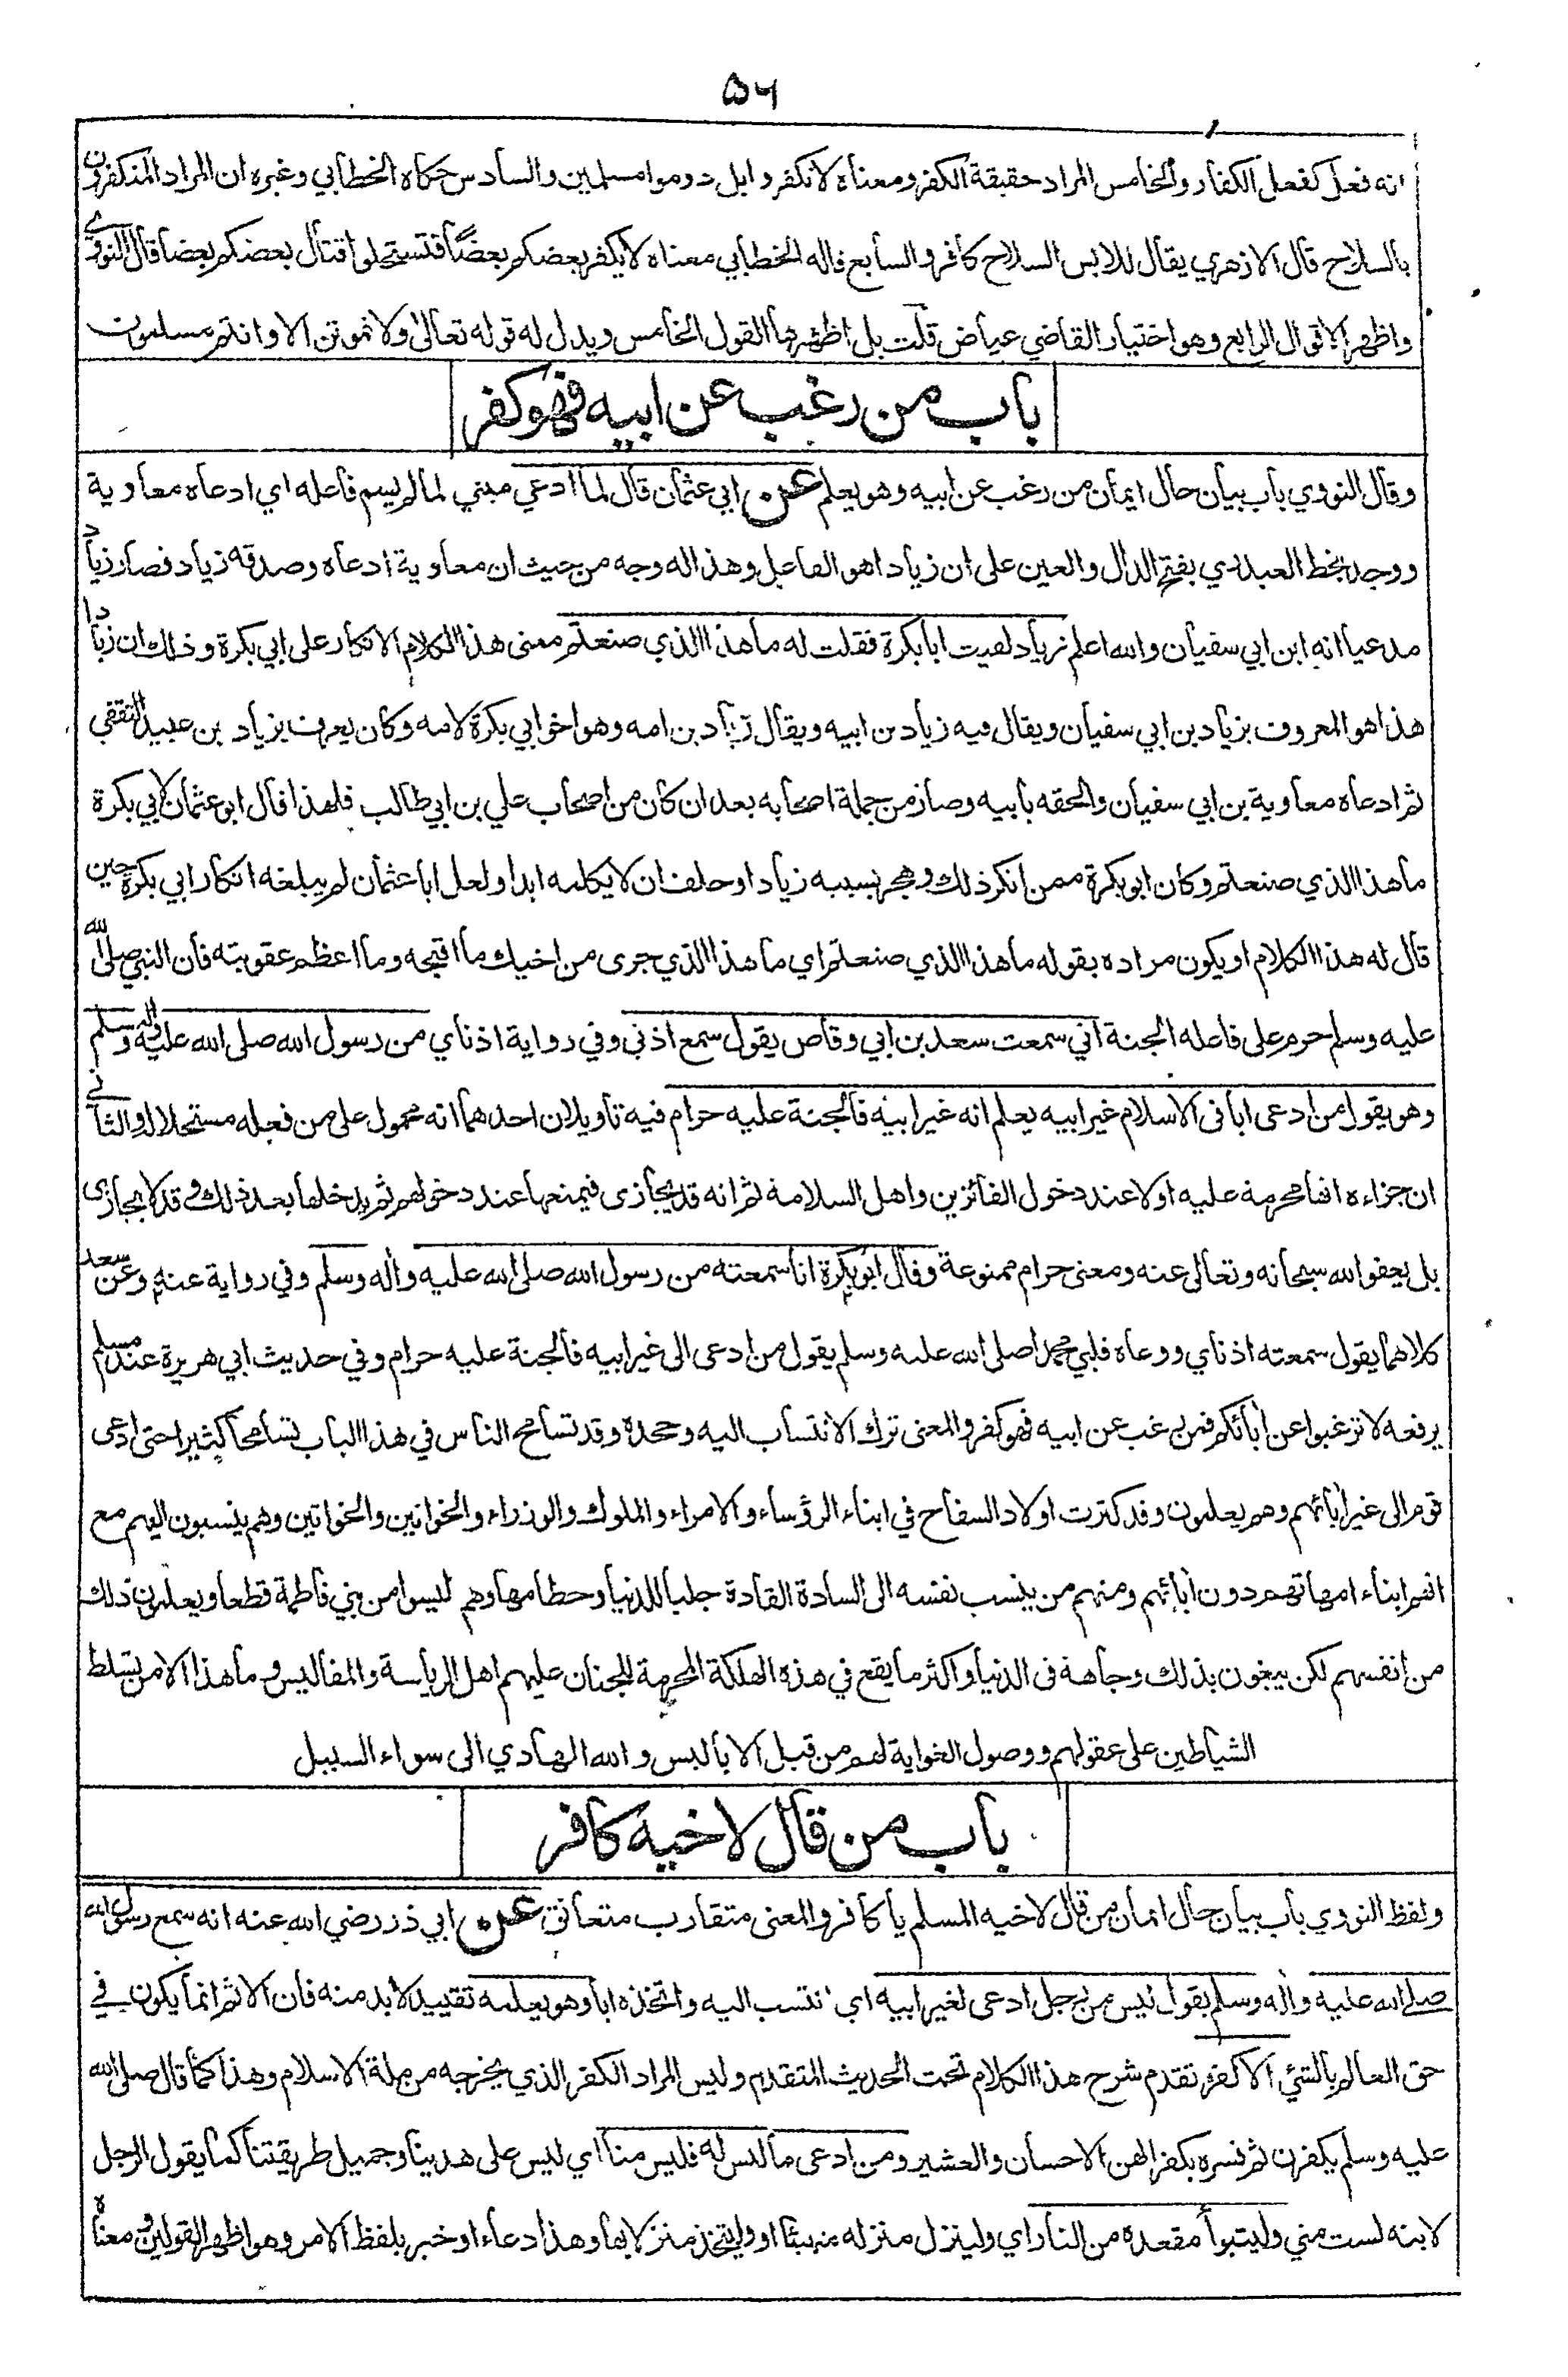 ٥٦
انه فعل كفعل الكفار والخامس المراد حقيقة الكفر ومعناه لا تكفروا بل دوموا مسلمين والسادس حكاه الخطابي وغيره ان المراد المتكفرون
بالسلاح قال الازهري يقال للابس السلاح كافر والسابع قاله الخطابي معناه لا يكفر بعضكم بعضًا فتستحلوا قتال بعضكم بعضا قال النووي
واظهر الاقوال الرابع وهو اختيار القاضي عياض قلت بل اظهرها القول الخامس ويدل له قوله تعالى ولا تموتن الا وانتم مسلمون
باب من رغب عن ابيه فهو كفر
وقال النووي باب بيان حال ايمان من رغب عن ابيه وهو يعلم عن ابي عثمان قال لما ادعي مبني لما لم يسم فاعله اي ادعاه معاوية
ووجد بخط العبدري بفتح الدال والعين على ان زيادا هو الفاعل وهذا له وجه من حيث ان معاوية ادعاه وصدقه زياد فصار زياد
مدعيا انه ابن ابي سفيان والله اعلم زياد لقيت ابا بكرة فقلت له ما هذا الذي صنعتم معنى هذا الكلام الانكار على ابي بكرة وذلك ان زيادا
هذا هو المعروف بزياد بن ابي سفيان ويقال فيه زياد بن ابيه ويقال زياد بن امه وهو اخو ابي بكرة لامه وكان يعرف بزياد بن عبيد الثقفي
ثم ادعاه معاوية بن ابي سفيان والحقه بابيه وصار من جملة اصحابه بعد ان كان من اصحاب علي بن ابي طالب فلهذا قال ابو عثمان لابي بكرة
ما هذا الذي صنعتم وكان ابو بكرة ممن انكر ذلك وهجر بسببه زيادا وحلف ان لا يكلمه ابدا ولعل ابا عثمان لم يبلغه انكار ابي بكرة حين
قال له هذا الكلام او يكون مراده بقوله ما هذا الذي صنعتم اي ما هذا الذي جرى من اخيك ما اقبحه وما اعظم عقوبته فان النبي صلى الله
عليه وسلم حرم على فاعله الجنة اني سمعت سعد بن ابي وقاص يقول سمع اذني وفي رواية اذناي من رسول الله صلى الله عليه واله وسلم
وهو يقول من ادعى ابا في الاسلام غير ابيه يعلم انه غير ابيه فالجنة عليه حرام فيه تاويلان احدهما انه محمول على من فعله مستحلا له والثاني
ان جزاءه انها محرمة عليه اولا عند دخول الفائزين واهل السلامة ثم انه قد يجازى فيمنعها عند دخولهم ثم يدخلها بعد ذلك وقد لا يجازى
بل يعفو الله سبحانه وتعالى عنه ومعنى حرام ممنوعة وقال ابو بكرة انا سمعته من رسول الله صلى الله عليه واله وسلم وفي رواية عنه وعن سعد
كلاهما يقول سمعته اذناي ووعاه قلبي محمدا صلى الله عليه وسلم يقول من ادعى الى غير ابيه فالجنة عليه حرام وفي حديث ابي هريرة عند مسلم
يرفعه لا ترغبوا عن ابائكم فمن رغب عن ابيه فهو كفر والمعنى ترك الانتساب اليه وجحده وقد تسامح الناس في هذا الباب تسامحا كثيرا حتى ادعى
قوم الى غير ابائهم وهم يعلمون وقد كثرت اولاد السفاح في ابناء الرؤساء والامراء والملوك والوزراء والخوانين والخواتين وهم ينسبون اليهم مع
انهم ابناء امهاتهم دون ابائهم ومنهم من ينسب نفسه الى السادة القادة جلبا للدنيا وحطامها وهم ليسوا من بني فاطمة قطعا ويعلمون ذلك
من انفسهم لكن يبغون بذلك وجاهة في الدنيا واكثر ما يقع في هذه الهلكة المحرمة للجنان عليهم اهل الرياسة والمفاليس وما هذا الا من تسلط
الشياطين على عقولهم ووصول الغواية لهم من قبل الاباليس والله الهادي الى سواء السبيل
باب من قال لاخيه كافر
ولفظ النووي باب بيان حال ايمان من قال لاخيه المسلم يا كافر والمعنى متقارب متعانق عن ابي ذر رضي الله عنه انه سمع رسول الله
صلى الله عليه واله وسلم يقول ليس من رجل ادعى لغير ابيه اي انتسب اليه واتخذه ابا وهو يعلمه تقييد لا بد منه فان الاثم انما يكون في
حق العالم بالشئ الا كفر تقدم شرح هذا الكلام تحت الحديث المتقدم وليس المراد الكفر الذي يخرجه من ملة الاسلام وهذا كما قال صلى الله
عليه وسلم يكفرن ثم فسره بكفرانهن الاحسان والعشير ومن ادعى ما ليس له فليس منا اي ليس على هدينا وجميل طريقتنا كما يقول الرجل
لابنه لست مني وليتبوأ مقعده من النار اي ولينزل منزله منها او وليتخذ منزلا بها وهذا دعاء او خبر بلفظ الامر وهو اظهر القولين ومعناه